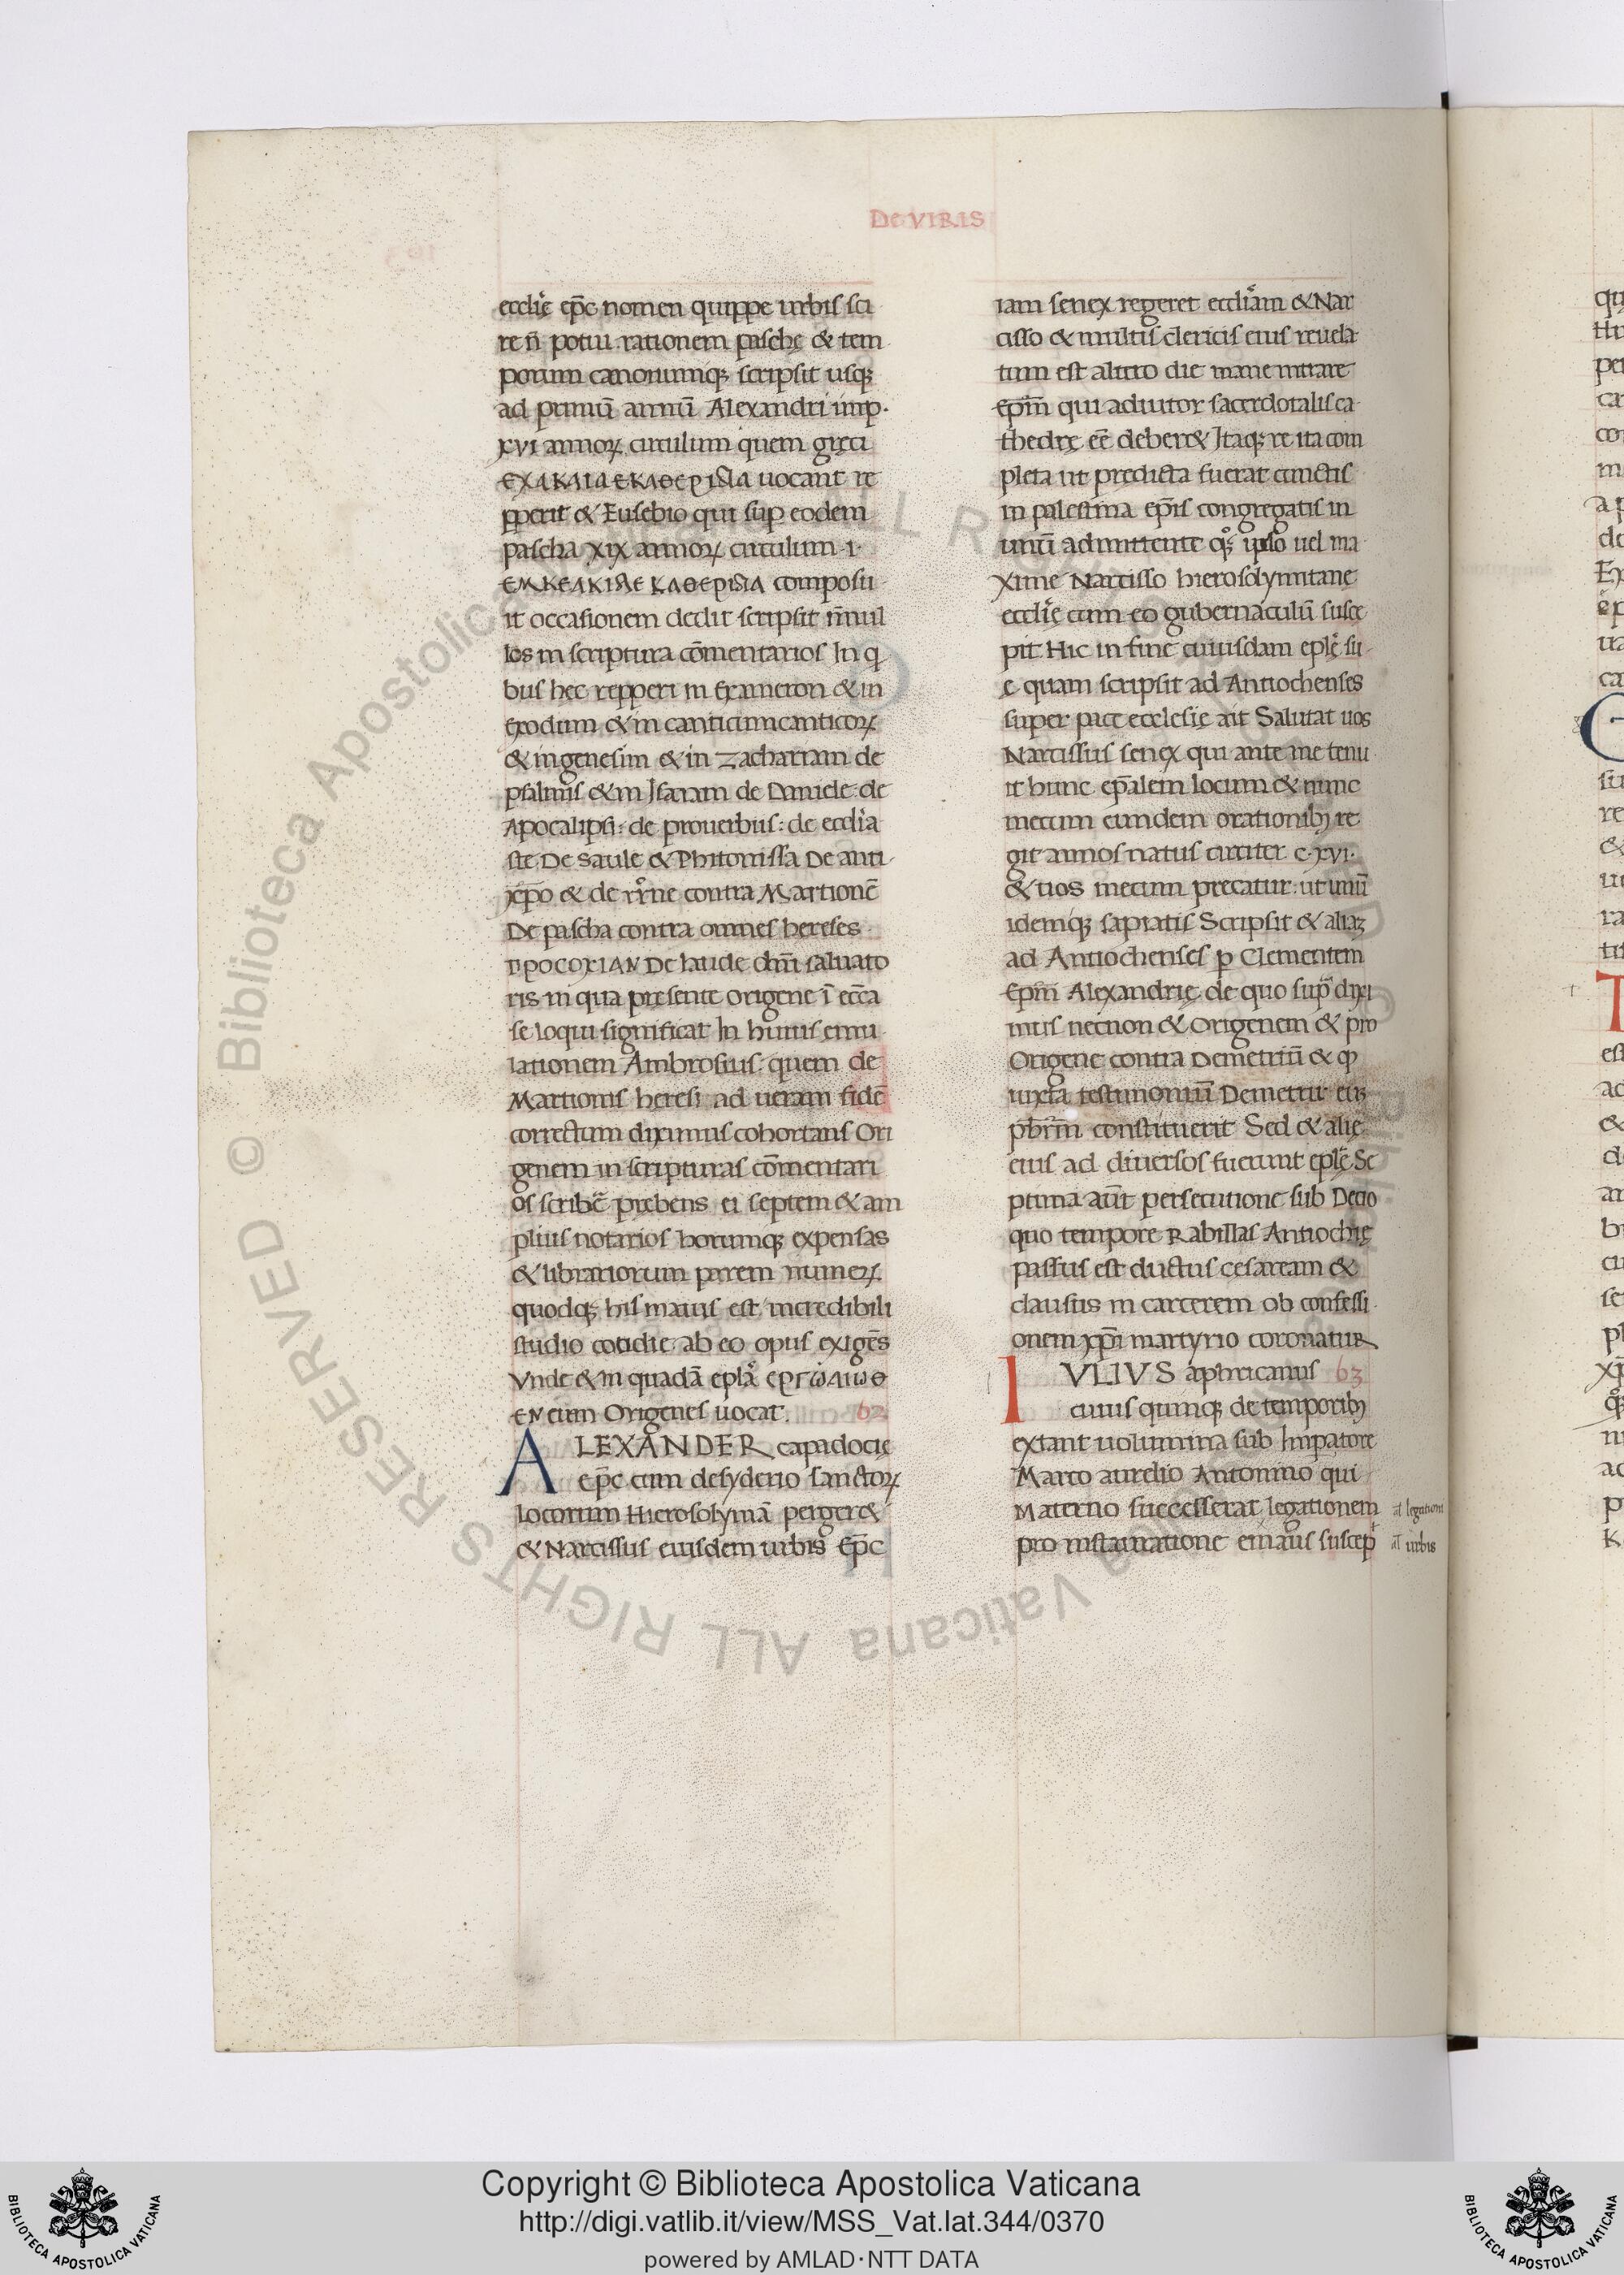 De VIRIS
ecclię ep̄c nomen quippe urbis sci
re n̄ potui rationem paschę & tem
porum canonumq; scripsit usq;
ad primū annū Alexandri imp.
xvi annoꝝ circulum quem gręci
uocant re
pperit & Eusebio qui sup eodem
pascha xix annoꝝ circulum .i.
composu
it occasionem dedit scripsit n̄nul
los in scriptura cōmentarios In q
bus hec repperi in Exameron & in
exodum & in canticum canticoꝝ
& in genesim & in Zachariam de
psalmis & in Isaiam de Daniele de
Apocalipsi: de prouerbiis: de ecclia
ste De Saule & Phitonissa De anti
xp̄o & de contra Martionē
De pascha contra omnes hereses
De laude dn̄i saluato
ris in qua presente Origene ī ecc̄a
se loqui significat In huius emu
lationem Ambrosius quem de
Martionis heresi ad ueram fidē
correctum diximus cohortans Ori
genem in scripturas cōmentari
os scribē prębens ei septem & am
plius notarios horumq; expensas
& librariorum parem numeꝝ
quodq; his maius est incredibili
studio cotidie ab eo opus exigēs
Vnde & in quadā epla
eum Origenes uocat. 62
ALEXANDER capadocię
ep̄c cum desyderio sanctoꝝ
locorum Hierosolymā perger&
& Narcissus eiusdem urbis Ep̄c
iam senex regeret eccliam & Nar
cisso & multis clericis eius reuela
tum est altero die mane intrare
Ep̄m qui adiutor sacerdotalis ca
thedrę eē deber& Itaq; re ita com
pleta ut predicta fuerat cunctis
in palestina ep̄is congregatis in
unū admittente q̊; ipso uel ma
xime Narcisso hierosolymitane
ecclię cum eo gubernaculū susce
pit Hic in fine cuiusdam eplę su
ę quam scripsit ad Antiochenses
super pace ecclesię ait Salutat uos
Narcissus senex qui ante me tenu
it hunc ep̄alem locum & nunc
mecum eundem orationib; re
git annos natus circiter c.xvi.
& uos mecum precatur: ut unū
idemq; sapiatis Scripsit & aliaʒ
ad Antiochenses p Clementem
Ep̄m Alexandrię de quo sup̄ dixi
mus necnon & Origenem & pro
Origene contra Demetriū & ꝙ
iuxta testimoniū Demetrii eū
p̄br̄m constituerit Sed & alię
eius ad diuersos fuerunt eplę Se
ptima aūt persecutione sub Decio
quo tempore Rabillas Antiochię
passus est ductus cesaream &
clausus in carcerem ob confessi
onem xp̄i martyrio coronatur
IVLIVS aphricanus 63
cuius quinq; de temporib;
extant uolumina sub Impatore
Marco aurelio Antonino qui
Materno successerat legationem al̄ legationi
pro instauratione emaus suscep̄ al̄ urbis
Copyright © Biblioteca Apostolica Vaticana
http://digi.vatlib.it/view/MSS_Vat.lat.344/0370
powered by AMLAD·NTT DATA